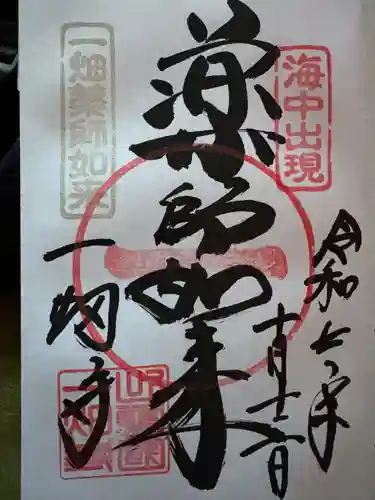 海中出現
令和七年
十月十二日
薬師如来
一畑薬師如来
一畑寺